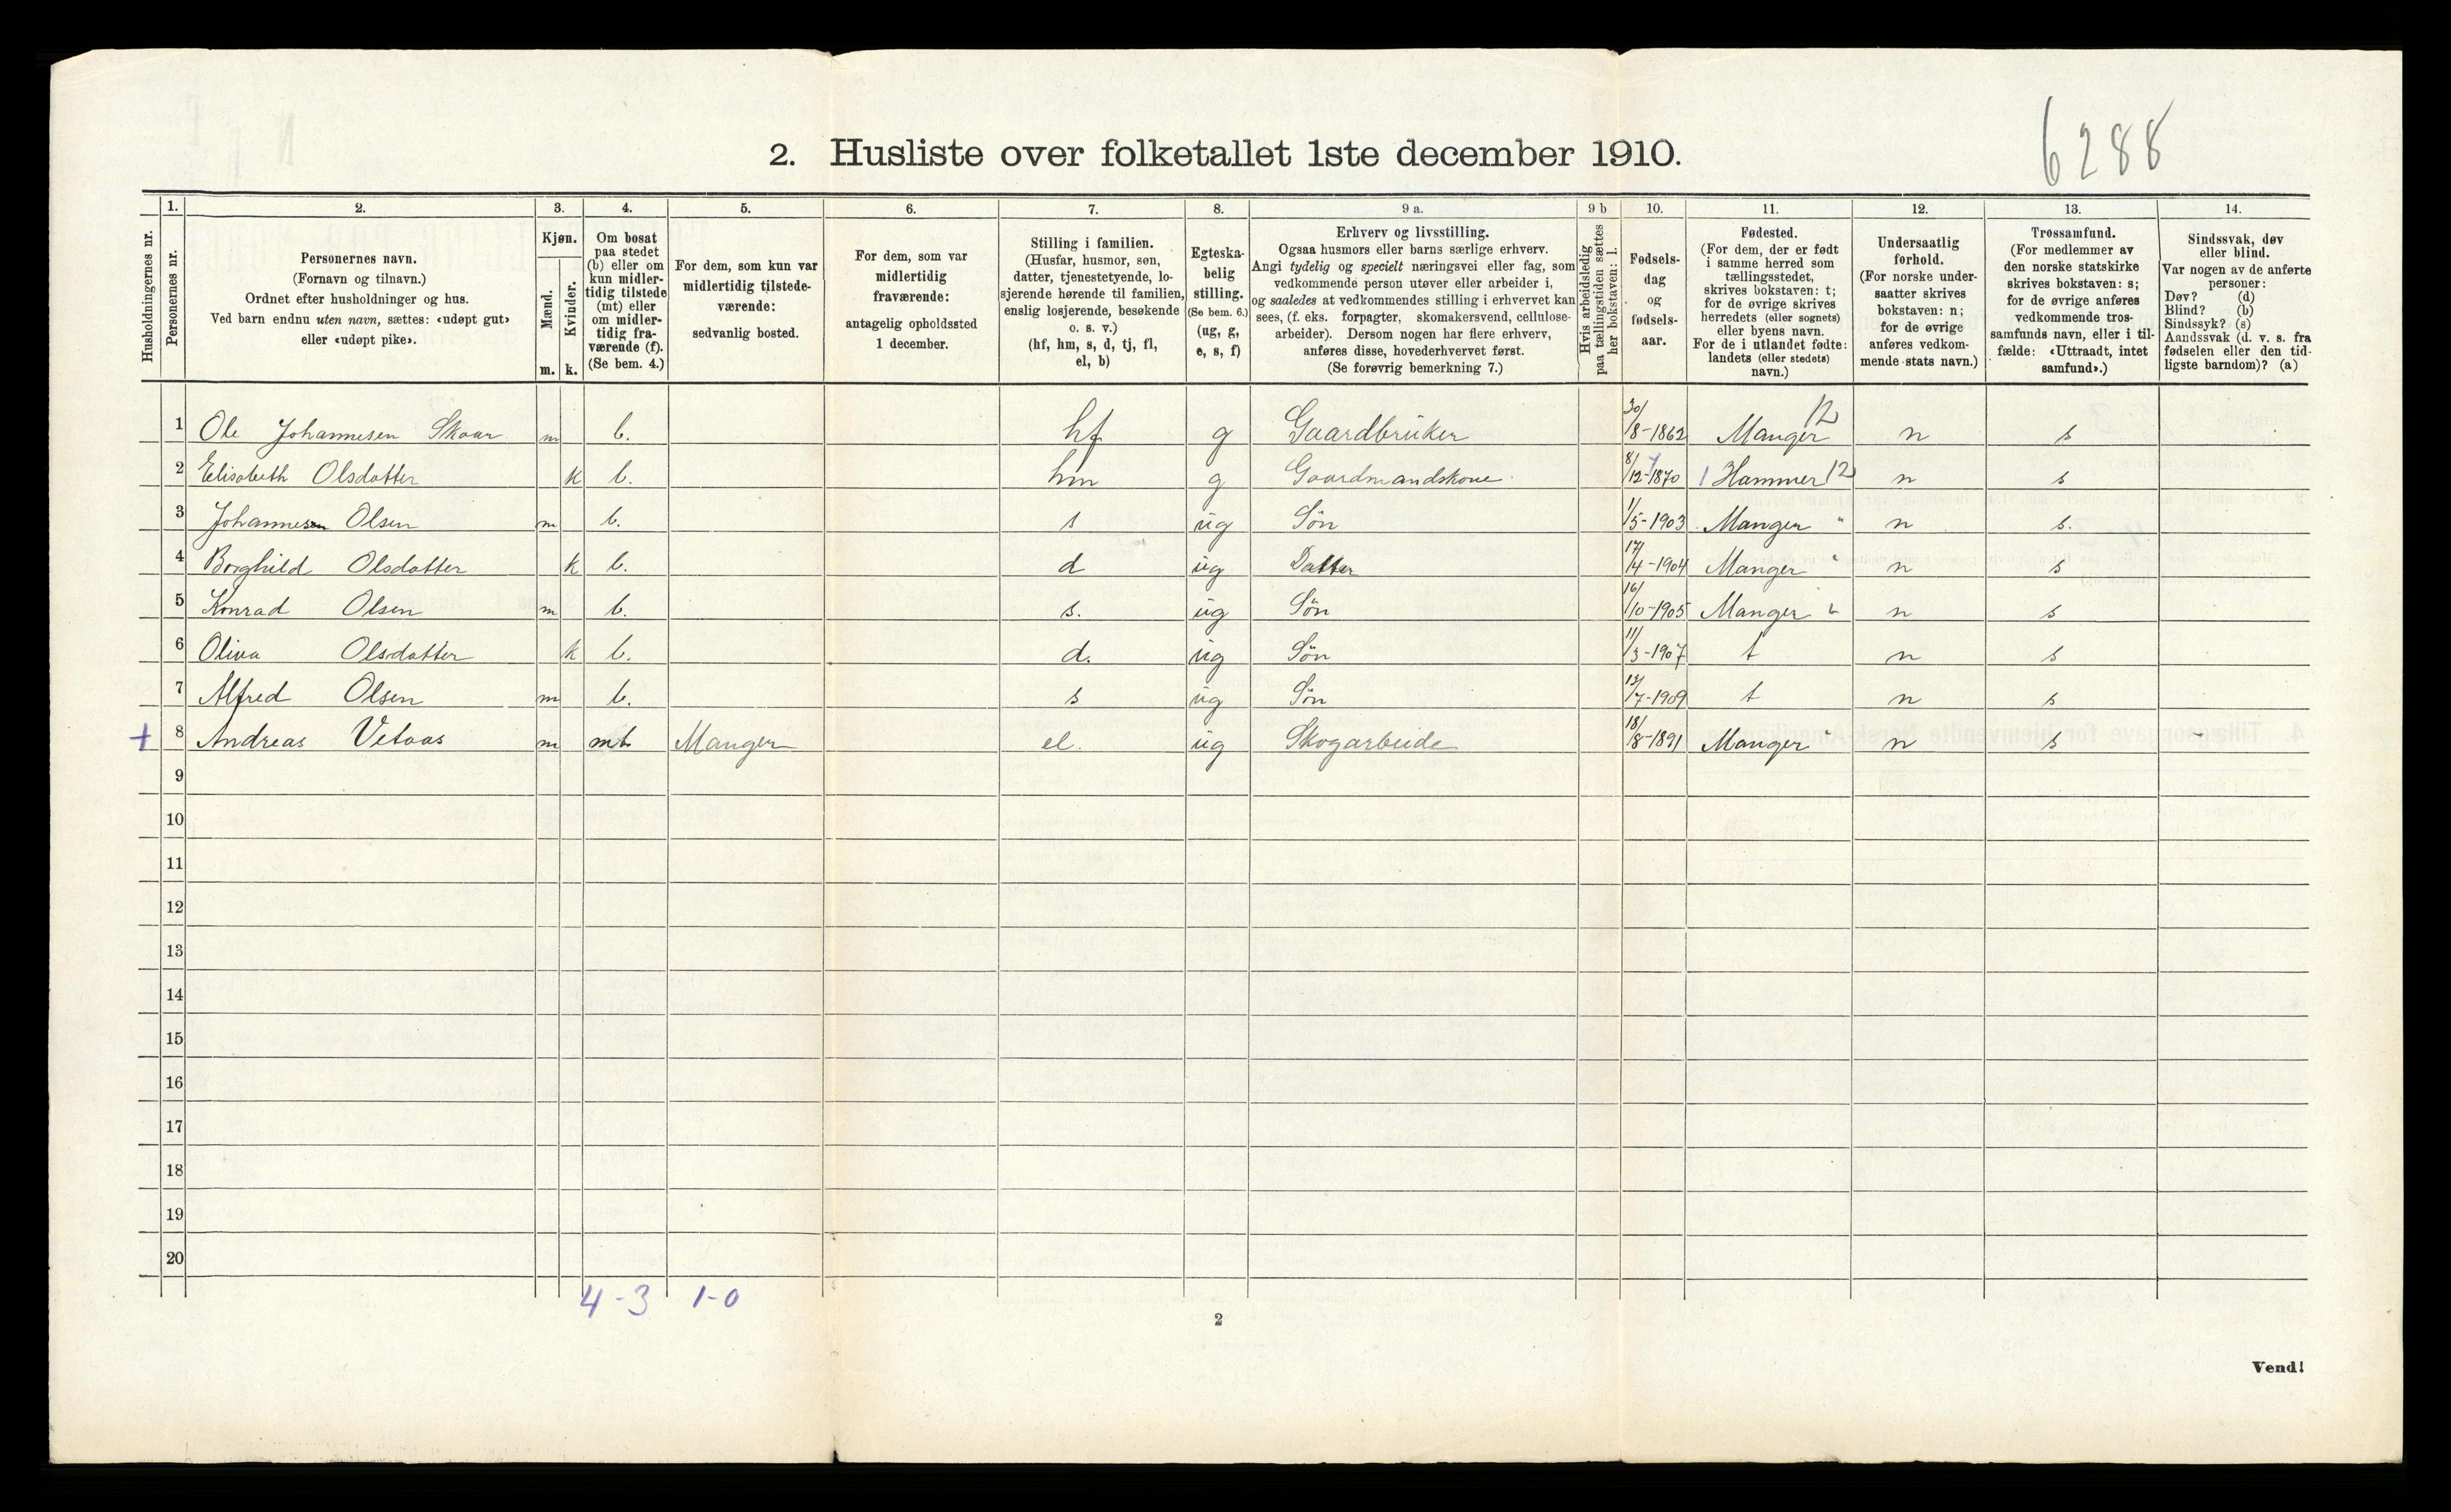 6288
2. Husliste over folketallet 1ste december 1910.
1. 2. 3. 4. 5. 6. 7. 8. 9 a. 9 b 10. 11. 12. 13. 14.
Husholdningernes nr.
Personernes nr.
Personernes navn.
(Fornavn og tilnavn.)
Ordnet efter husholdninger og hus.
Ved barn endnu uten navn, sættes: «udøpt gut»
eller «udøpt pike».
Kjøn.
Mænd.
Kvinder.
m. k.
Om bosat
paa stedet
(b) eller om
kun midler-
tidig tilstede
(mt) eller
om midler-
tidig fra-
værende (f).
(Se bem. 4.)
For dem, som kun var
midlertidig tilstede-
værende:
sedvanlig bosted.
For dem, som var
midlertidig
fraværende:
antagelig opholdssted
1 december.
Stilling i familien.
(Husfar, husmor, søn,
datter, tjenestetyende, lo-
sjerende hørende til familien,
enslig losjerende, besøkende
o. s. v.)
(hf, hm, s, d, tj, fl,
el, b)
Egteska-
belig
stilling.
(Se bem. 6.)
(ug, g,
e, s, f)
Erhverv og livsstilling.
Ogsaa husmors eller barns særlige erhverv.
Angi tydelig og specielt næringsvei eller fag, som
vedkommende person utøver eller arbeider i,
og saaledes at vedkommendes stilling i erhvervet kan
sees, (f. eks. forpagter, skomakersvend, cellulose-
arbeider). Dersom nogen har flere erhverv,
anføres disse, hovederhvervet først.
(Se forøvrig bemerkning 7.)
Hvis arbeidsledig
paa tællingstiden sættes
her bokstaven: l.
Fødsels-
dag
og
fødsels-
aar.
Fødested.
(For dem, der er født
i samme herred som
tællingsstedet,
skrives bokstaven: t;
for de øvrige skrives
herredets (eller sognets)
eller byens navn.
For de i utlandet fødte:
landets (eller stedets)
navn.)
Undersaatlig
forhold.
(For norske under-
saatter skrives
bokstaven: n;
for de øvrige
anføres vedkom-
mende stats navn.)
Trossamfund.
(For medlemmer av
den norske statskirke
skrives bokstaven: s;
for de øvrige anføres
vedkommende tros-
samfunds navn, eller i til-
fælde: «Uttraadt, intet
samfund».)
Sindssvak, døv
eller blind.
Var nogen av de anførte
personer:
Døv? (d)
Blind? (b)
Sindssyk? (s)
Aandssvak (d. v. s. fra
fødselen eller den tid-
ligste barndom)? (a)
1 Ole Johannesen Skaar m b. hf g Gaardbruker 30/8-1862 Manger 12 n s
2 Elisabeth Olsdatter k b. hm g Gaardmandskone 8/12-1870 1 Hammer 12 n s
3 Johannes Olsen m b. s ug Søn 1/5-1903 Manger " n s.
4 Borghild Olsdatter k b. d ug Datter 17/4-1904 Manger " n s
5 Konrad Olsen m b. s. ug Søn 16/10-1905 Manger " n s
6 Oliva Olsdatter k b. d. ug Søn 11/3-1907 t n s
7 Alfred Olsen m b. s ug Søn 13/7-1909 t n s
+ 8 Andreas Vetaas m mt Manger el. ug Skogarbeide 18/8-1891 Manger " n s
9
10
11
12
13
14
15
16
17
18
19
20
4-3 1-0
2
Vend!